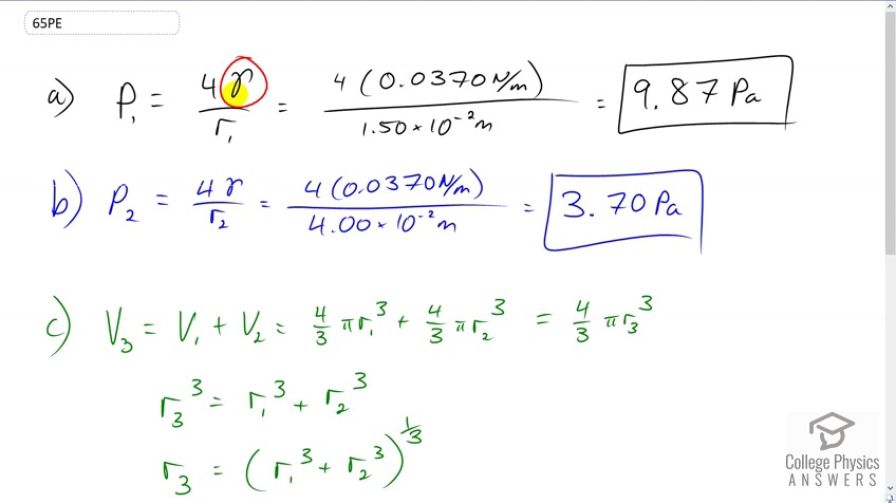 65PE
a) P₁ = 4γ/r₁ = 4(0.0370 N/m)/1.50×10⁻²m = 9.87 Pa
b) P₂ = 4γ/r₂ = 4(0.0370 N/m)/4.00×10⁻²m = 3.70 Pa
c) V₃ = V₁ + V₂ = 4/3 πr₁³ + 4/3 πr₂³ = 4/3 πr₃³
r₃³ = r₁³ + r₂³
r₃ = (r₁³ + r₂³)^1/3
College Physics
ANSWERS